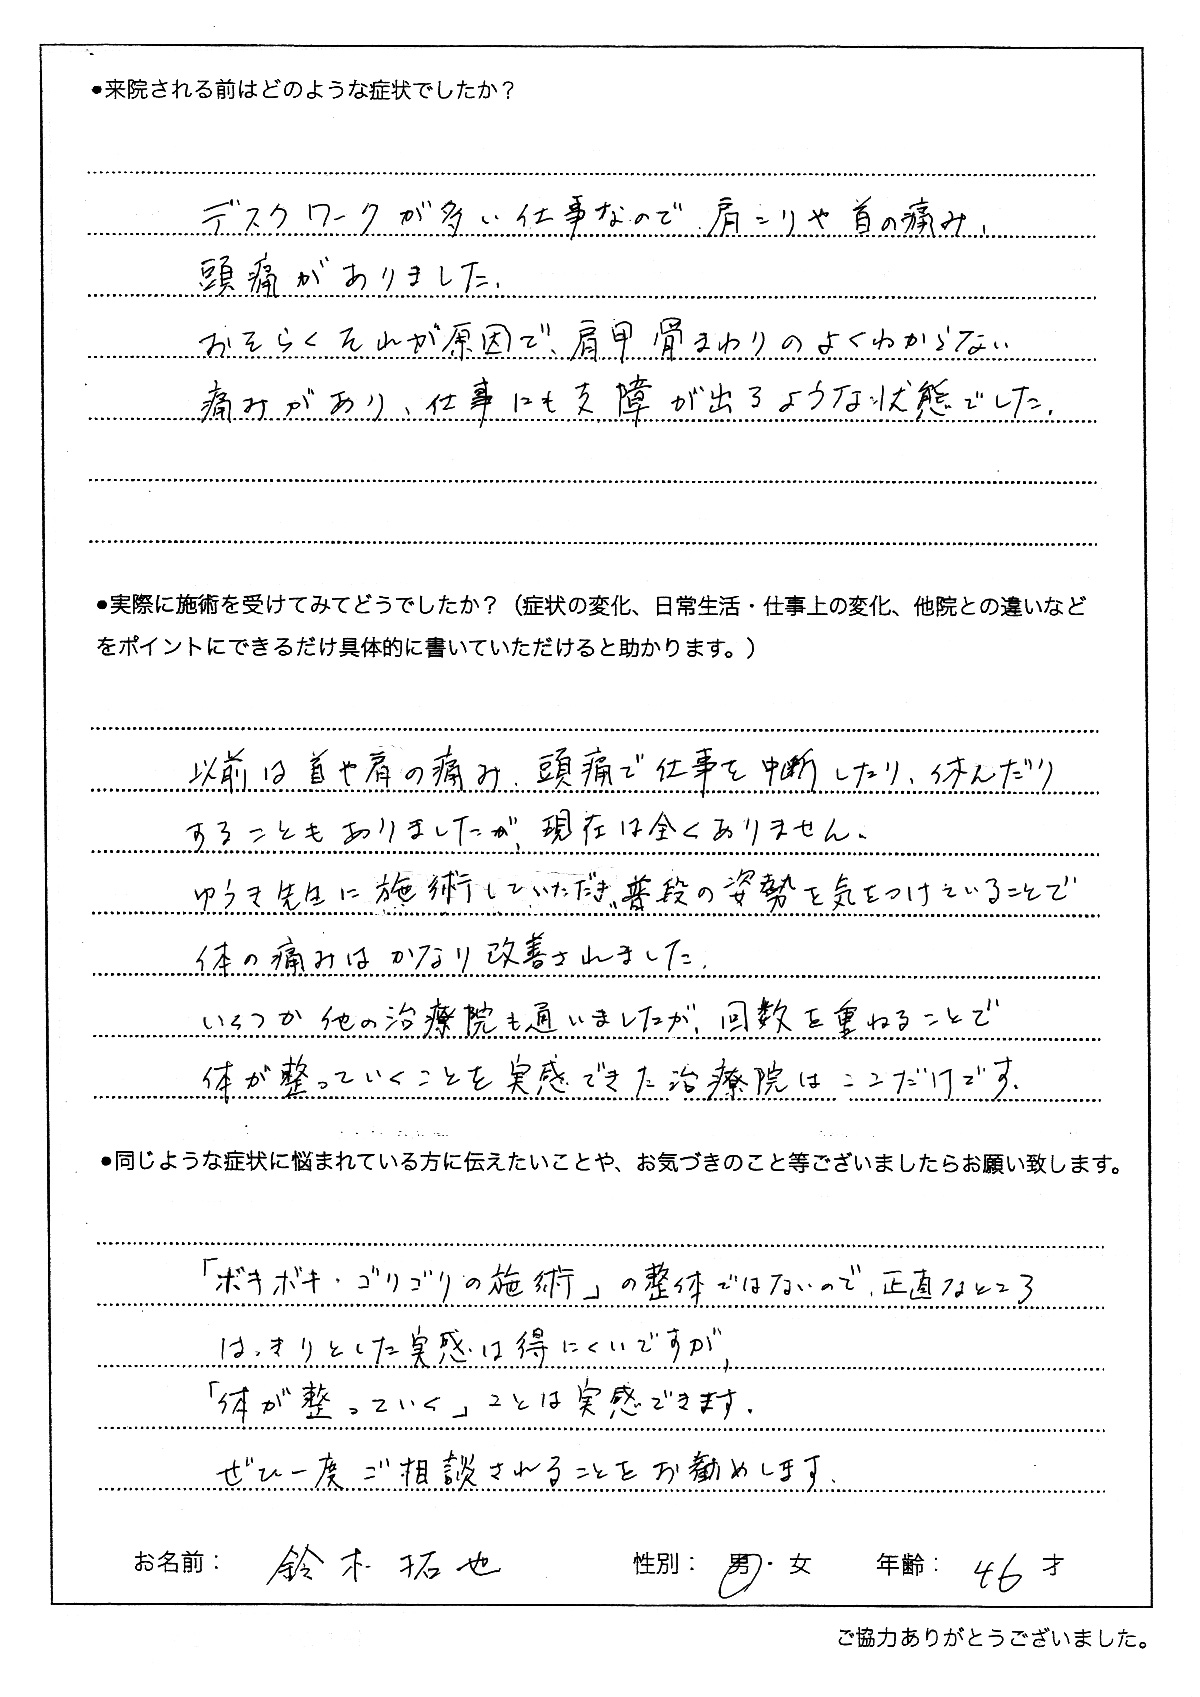 ●来院される前はどのような症状でしたか？
デスクワークが多い仕事なので、肩こりや首の痛み、
頭痛がありました。
おそらくそれが原因で、肩甲骨まわりのよくわからない
痛みがあり、仕事にも支障が出るような状態でした。
●実際に施術を受けてみてどうでしたか？（症状の変化、日常生活・仕事上の変化、他院との違いなど
をポイントにできるだけ具体的に書いていただけると助かります。）
以前は首や肩の痛み、頭痛で仕事を中断したり、休んだり
することもありましたが、現在は全くありません。
ゆうき先生に施術していただき、普段の姿勢を気をつけていることで
体の痛みはかなり改善されました。
いくつか他の治療院も通いましたが、回数を重ねることで
体が整っていくことを実感できた治療院はここだけです。
●同じような症状に悩まれている方に伝えたいことや、お気づきのこと等ございましたらお願い致します。
「ボキボキ・ゴリゴリの施術」の整体ではないので、正直なところ
はっきりとした実感は得にくいですが、
「体が整っていく」ことは実感できます。
ぜひ一度ご相談されることをお勧めします。
お名前： 鈴木拓也 性別： 男・女 年齢： 46 才
ご協力ありがとうございました。